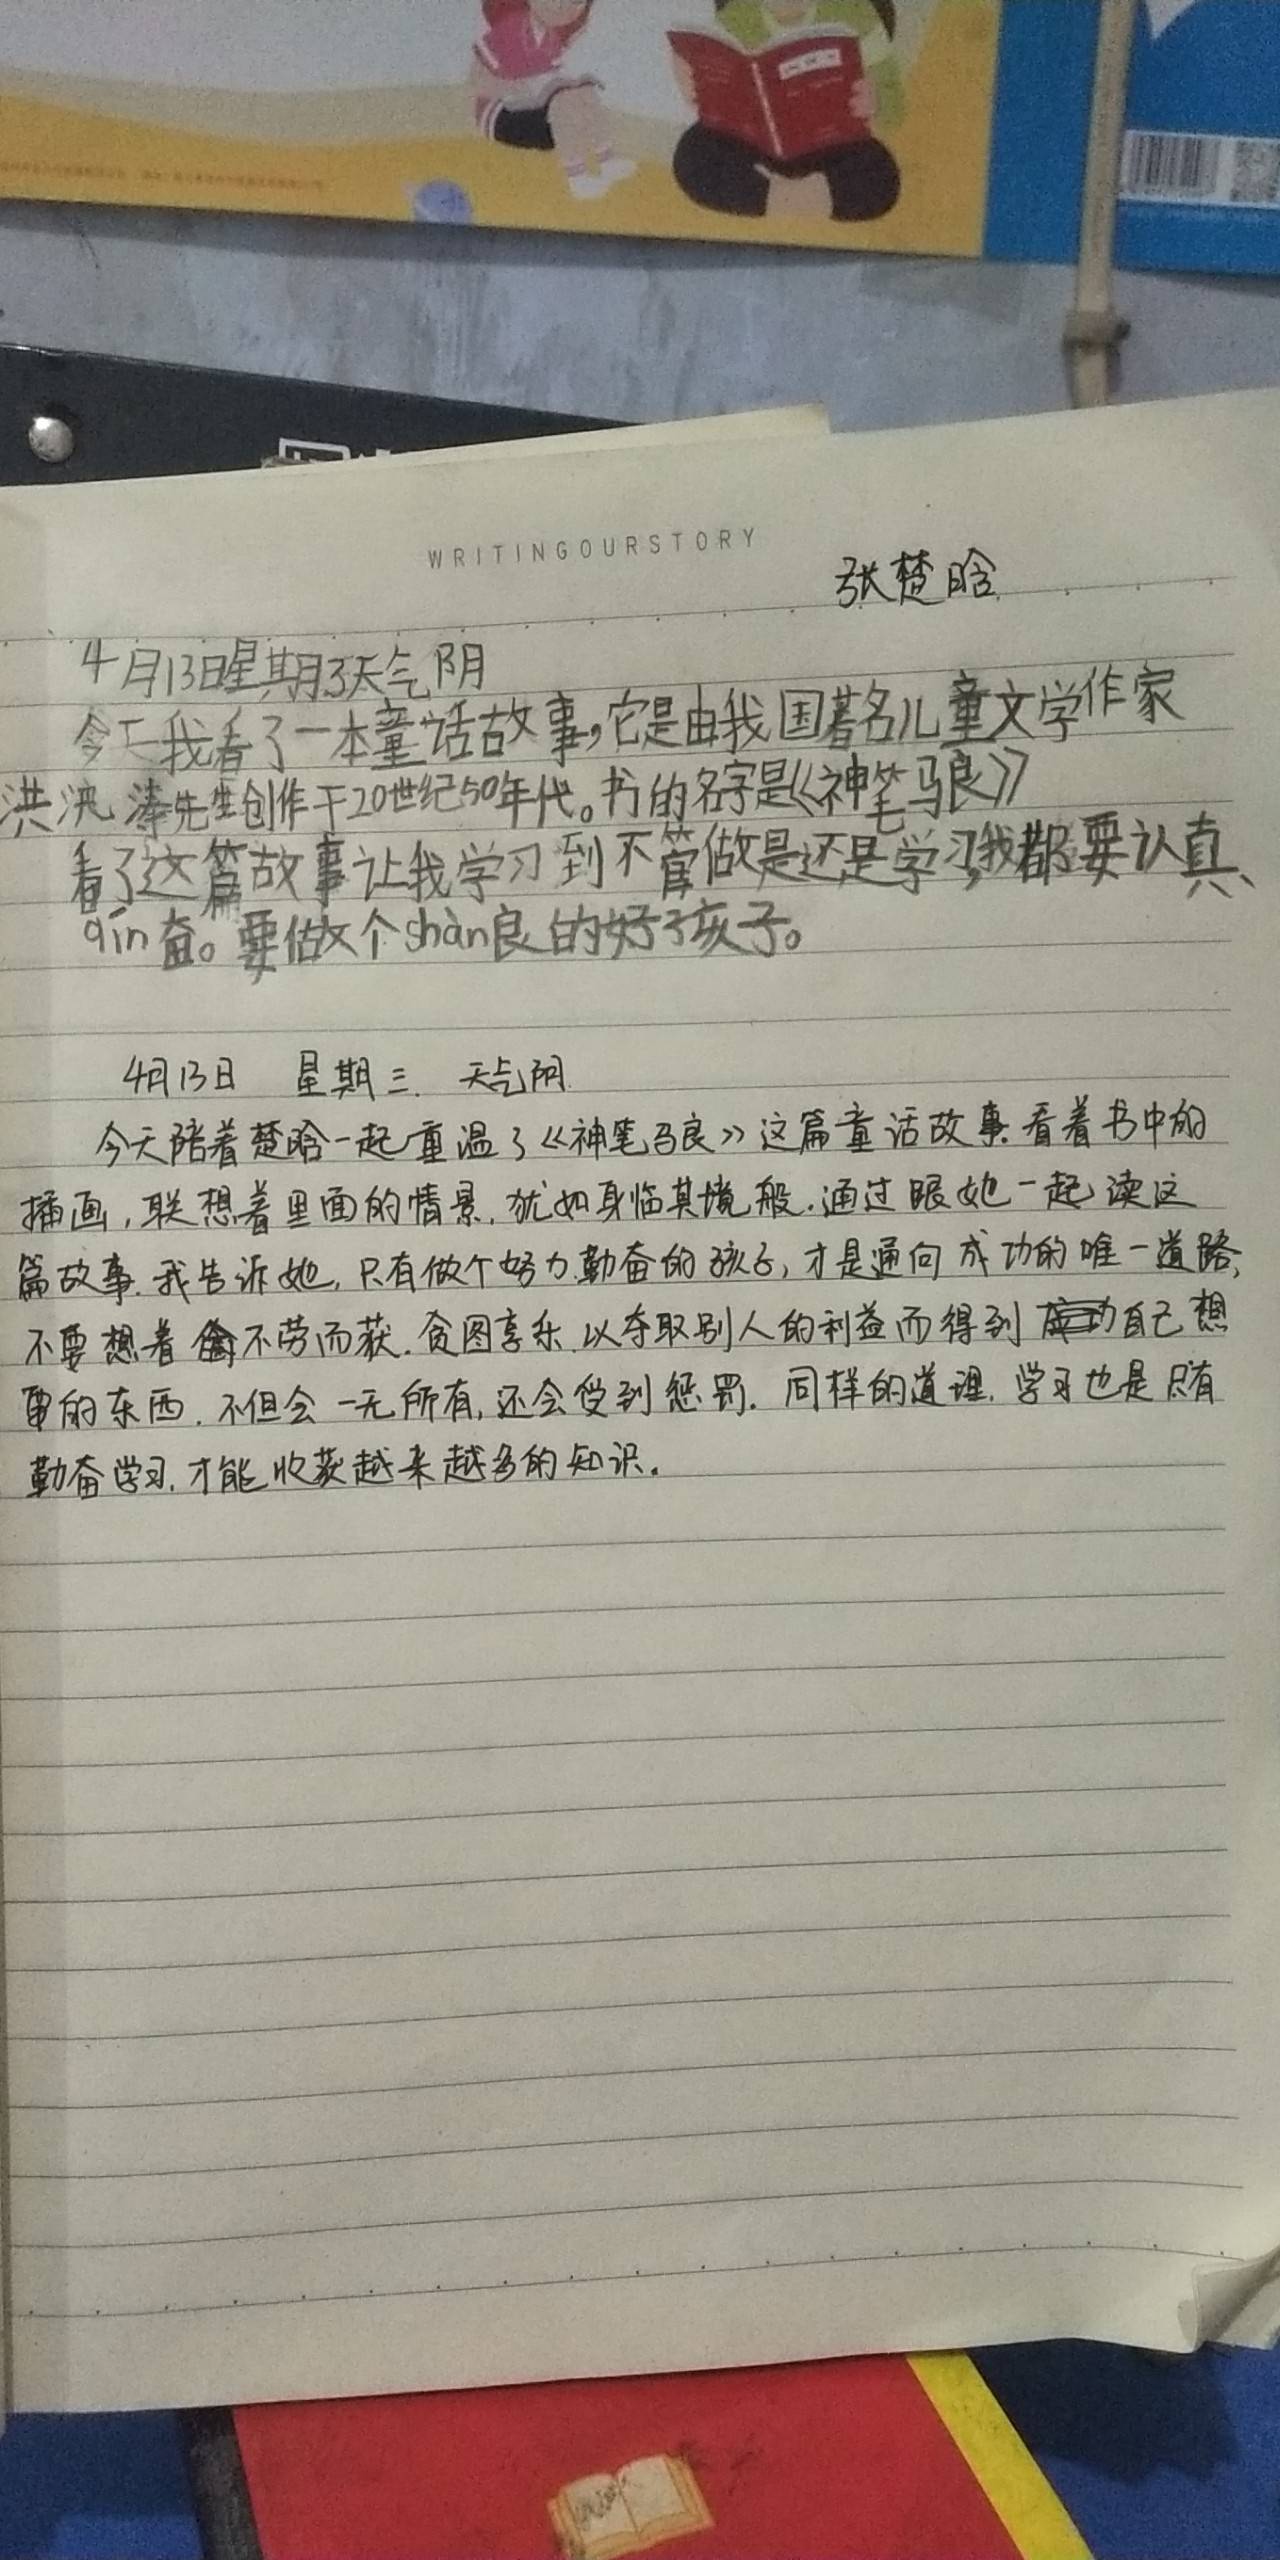 WRITINGOURSTORY
张楚晗
4月13日星期3天气阴
今天我看了一本童话故事,它是由我国著名儿童文学作家
洪汛涛先生创作于20世纪50年代。书的名字是《神笔马良》
看了这篇故事让我学习到不管做是还是学习,我都要认真、
qín奋。要做个shàn良的好孩子。
4月13日 星期三. 天气阴.
今天陪着楚晗一起重温了《神笔马良》这篇童话故事.看着书中的
插画,联想着里面的情景,犹如身临其境般.通过跟她一起读这
篇故事.我告诉她,只有做个努力.勤奋的孩子,才是通向成功的唯一道路,
不要想着不劳而获.贪图享乐.以夺取别人的利益而得到自己想
要的东西.不但会一无所有,还会受到惩罚.同样的道理.学习也是只有
勤奋学习.才能收获越来越多的知识.